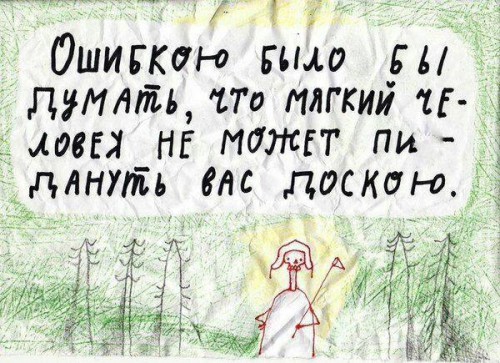 Ошибкою было бы
думать, что мягкий че-
ловек не может пи-
дануть вас доскою.